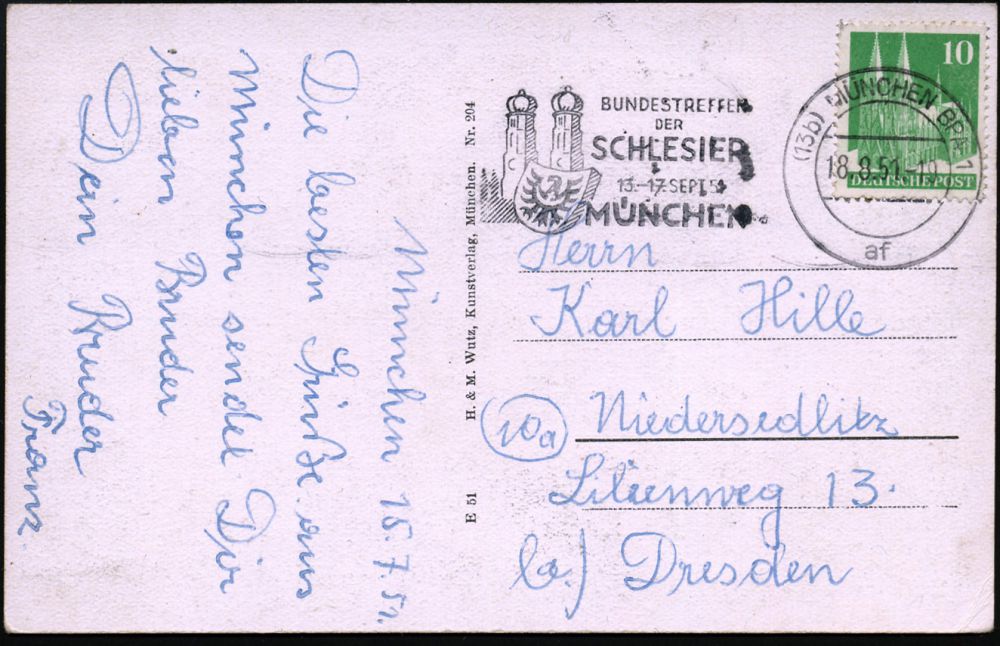 München 15.7.51.
Die besten Grüße aus
München sendet Dir
lieben Bruder
Dein Bruder
Franz.
E 51 H. & M. Wutz, Kunstverlag, München. Nr. 204
BUNDESTREFFEN
DER
SCHLESIER
13.-17. SEPT. 51
MÜNCHEN
(13b) MÜNCHEN BPA 1
18.8.51.-10
af
10
DEUTSCHE POST
Herrn
Karl Hille
10a Niedersedlitz
Lilienweg 13.
b.) Dresden